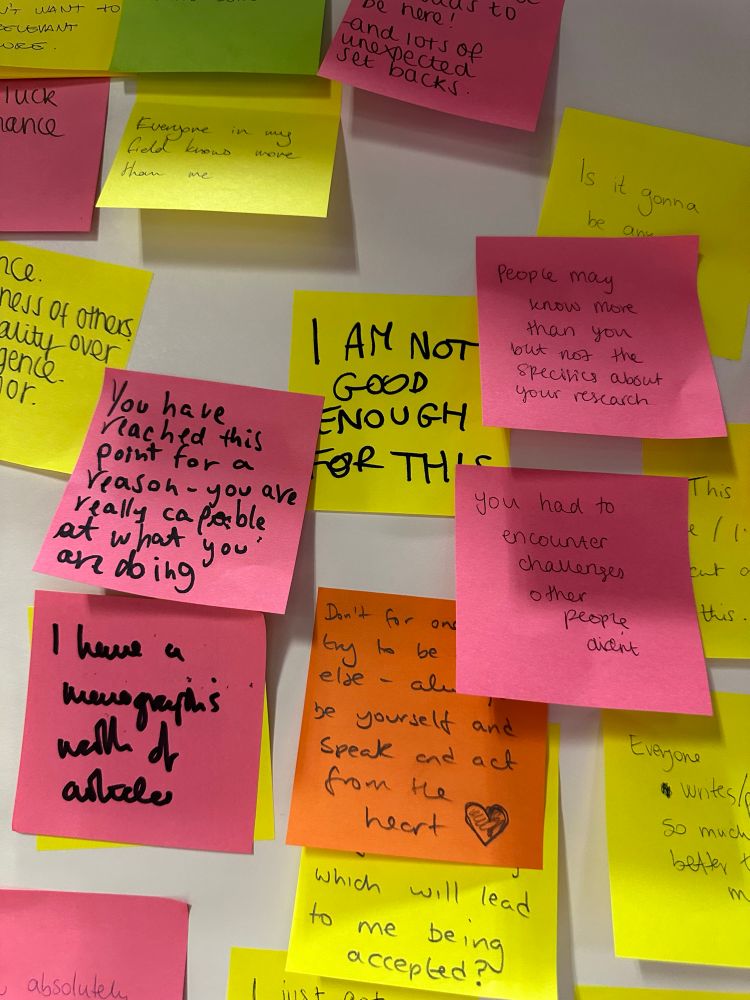 'T WANT TO
RELEVANT
be here!
and lots of
unexpected
set backs.
luck
Everyone in my
field knows more
than me
Is it gonna
be any
nce.
ness of others
ality over
gence.
or.
I AM NOT
GOOD
ENOUGH
FOR THIS
People may
know more
than you
but not the
specifics about
your research
You have
reached this
point for a
reason - you are
really capable
at what you
are doing
you had to
encounter
challenges
other
people
didnt
This
this.
I have a
monographs
worth of
articles
Don't for one
try to be
else -
be yourself and
speak and act
from the
heart
Everyone
writes/
so much
better t
m
which will lead
to me being
accepted?
absolutely
I just got